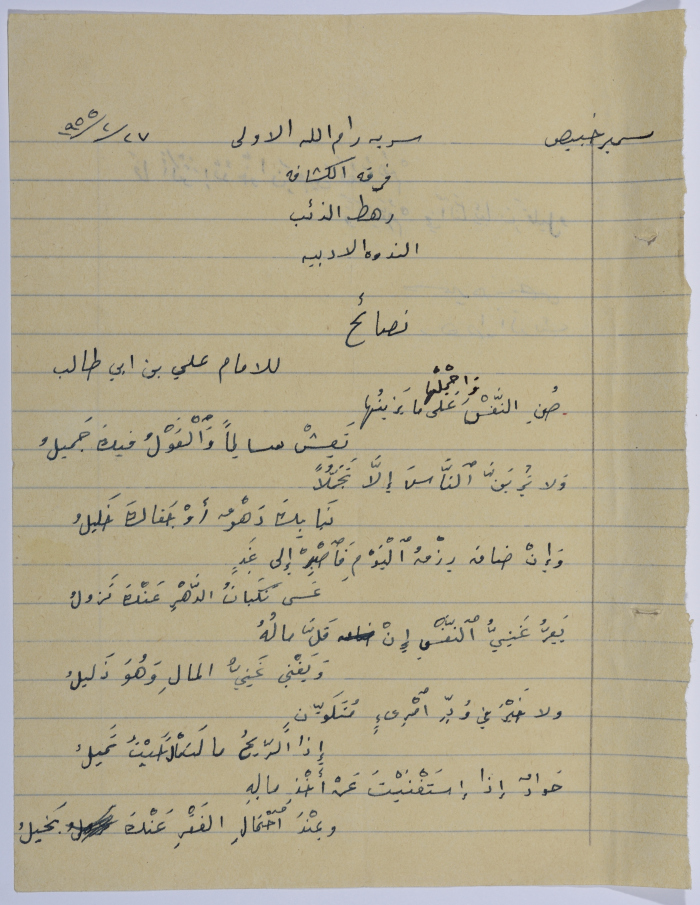 سمير خبيص سريه رام الله الاولى ٢٧/٢/٩٥٥
فرقه الكشافه
رهط الذئب
الندوه الادبيه
نصائح
للامام علي بن ابي طالب
صُنِ النَّفْسَ وَاحْمِلْها عَلى ما يَزينُها
تَعِشْ سالِماً وَٱلْقَوْلُ فيكَ جَميلُ
وَلا تُرِيَنَّ ٱلنَّاسَ إلَّا تَجَمُّلاً
نَبا بِكَ دَهْرٌ أوْ جَفاكَ خَليلُ
وَإنْ ضاقَ رِزْقُ ٱلْيَوْمِ فَٱصْبِرْ إلى غَدٍ
عَسى نَكَباتُ الدَّهْرِ عَنْكَ تَزولُ
يَعِزُّ غَنِيُّ ٱلنَّفْسِ إنْ قَلَّ مالُهُ
وَيَغْنى غَنِيُّ المالِ وَهُوَ ذَليلُ
ولا خَيْرَ في وُدِّ ٱمْرِىءٍ مُتَلَوِّنٍ
إذا الرِّيحُ مالَتْ مالَ حَيْثُ تَميلُ
جَوادٌ إذا إستَغْنَيْتَ عَنْ أَخْذِ مالِهِ
وعِنْدَ ٱحْتِمالِ الفَقْرِ عَنْكَ بَخيلُ